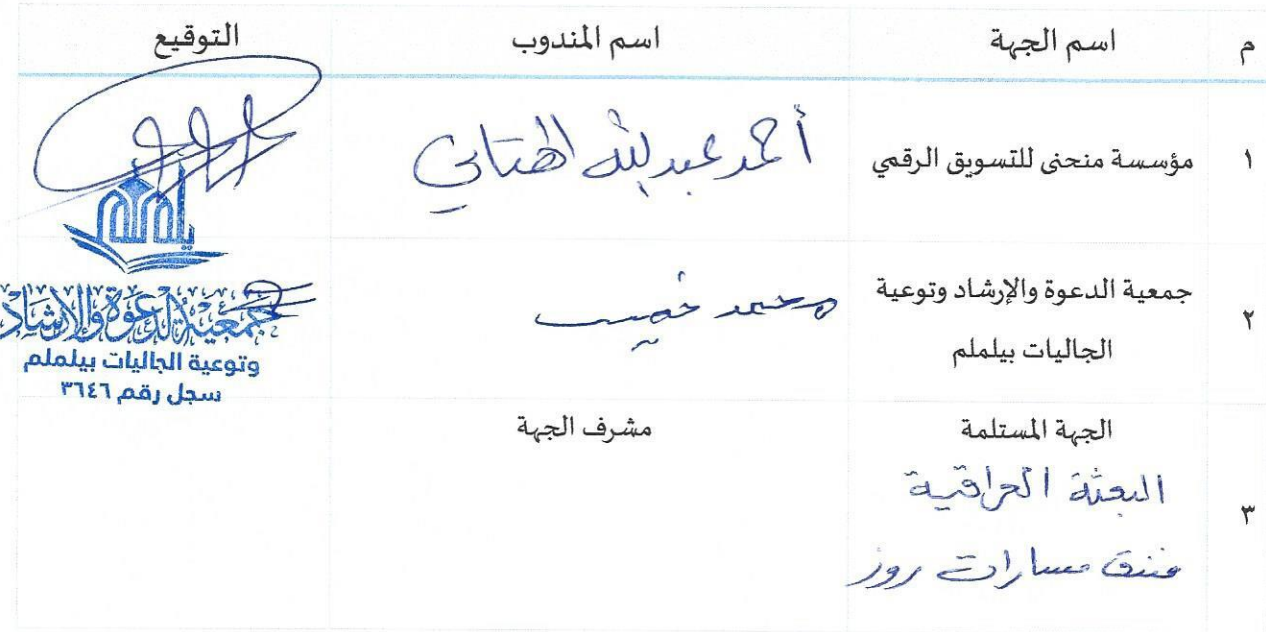 م اسم الجهة اسم المندوب التوقيع
١ مؤسسة منحنى للتسويق الرقمي أحمد عبدلله الهتاني
٢ جمعية الدعوة والإرشاد وتوعية
الجاليات بيلملم
محمد خميس
يلملم
جمعية الدعوة والإرشاد
وتوعية الجاليات بيلملم
سجل رقم ٣٦٤٦
٣ الجهة المستلمة مشرف الجهة
البعثة العراقية
فندق مسارات روز